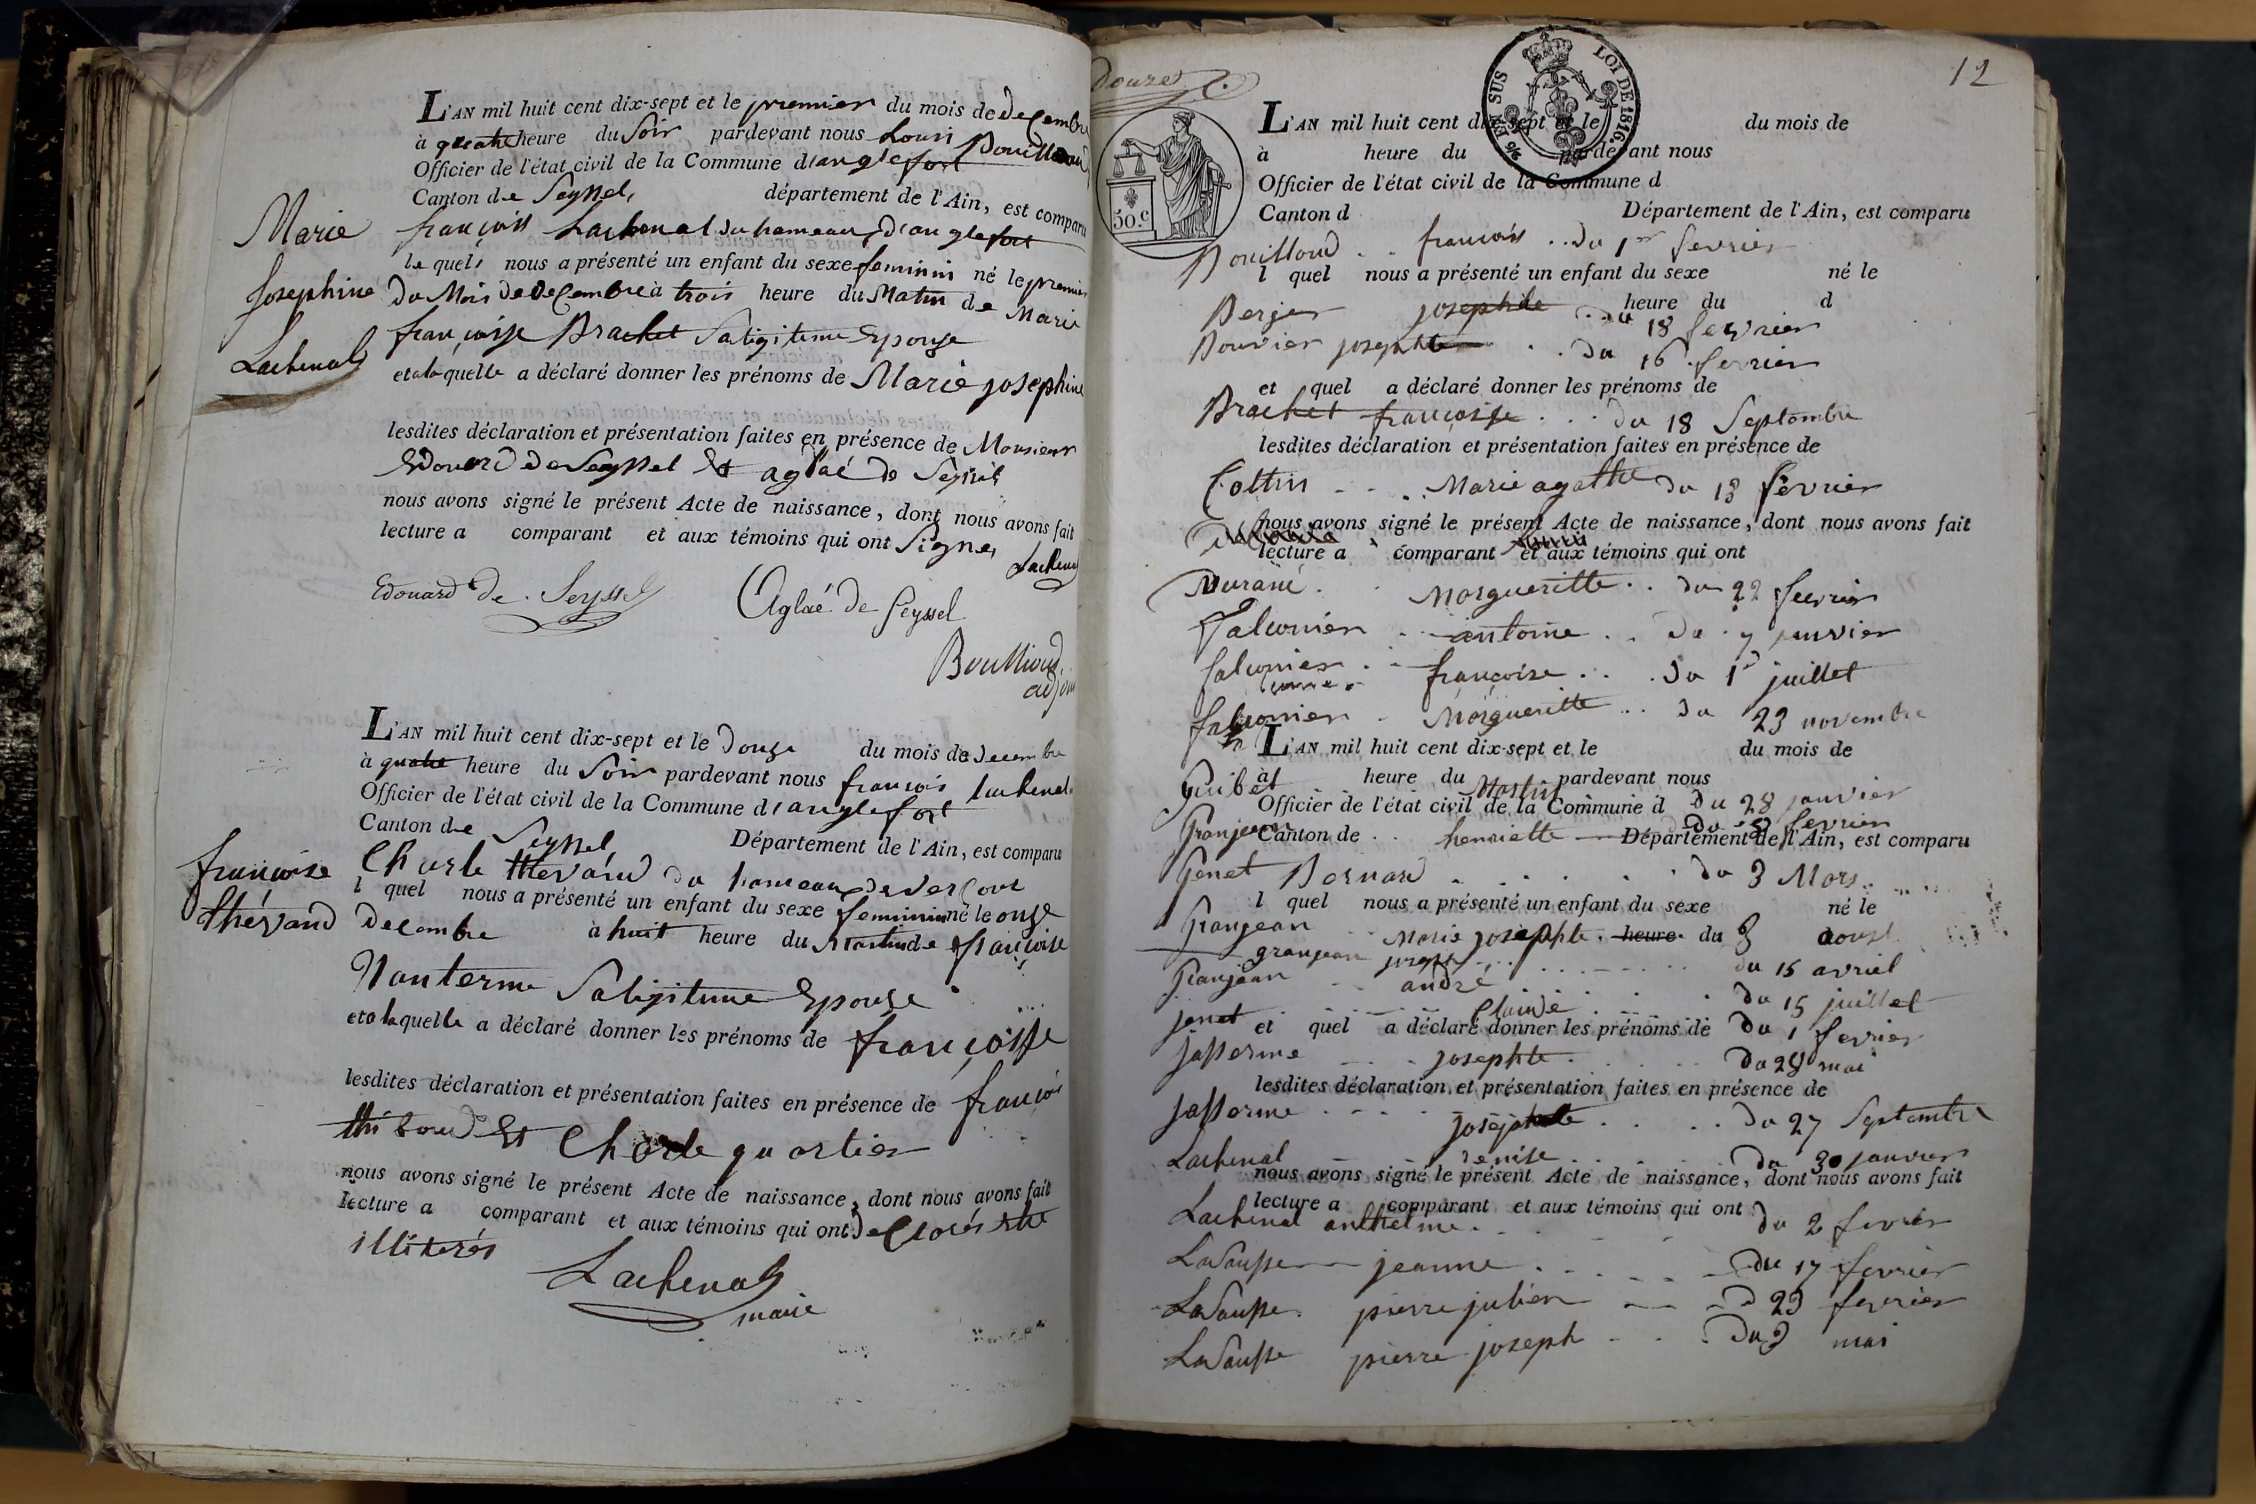 L'AN mil huit cent dix-sept et le premier du mois de decembre
à quatre heure du Soir pardevant nous Louis Bouilloud
Officier de l'état civil de la Commune d'anglefort
Canton de Seyssel, département de l'Ain, est comparu
françois Lachenal du hameau d'anglefort
le quel nous a présenté un enfant du sexe feminin né le premier
Du Mois de decembre à trois heure du Matin de Marie
françoise Brachet Sa ligitime Epouse
et a la quelle a déclaré donner les prénoms de Marie josephine
lesdites déclaration et présentation faites en présence de Monsieur
Edouard de Seyssel Et aglaé de Seyssel
nous avons signé le présent Acte de naissance, dont nous avons fait
lecture a comparant et aux témoins qui ont Signés
Lachenal
Edouard de Seyssel Aglaé De Seyssel
Bouilloud
adjoint
Marie
Josephine
Lachenal
L'AN mil huit cent dix-sept et le Douze du mois de decembre
à quatre heure du Soir pardevant nous françois Lachenal
Officier de l'état civil de la Commune d'anglefort
Canton de Seyssel Département de l'Ain, est comparu
Charle thevand du hameau de
l quel nous a présenté un enfant du sexe feminin né le onze
Decembre à huit heure du Matin de françoise
Nanterme Sa ligitime Epouse
et a laquelle a déclaré donner les prénoms de françoise
lesdites déclaration et présentation faites en présence de françois
Et Charle quartier
nous avons signé le présent Acte de naissance, dont nous avons fait
lecture a comparant et aux témoins qui ont Declarés etre
illiterés
Lachenal
maire
françoise
thévand
Douze
12
EN SUS LOI DE 1816.
50.c
L'AN mil huit cent dix-sept et le du mois de
à heure du pardevant nous
Officier de l'état civil de la Commune d
Canton d Département de l'Ain, est comparu
Bouilloud .. françois .. du 1er fevrier
l quel nous a présenté un enfant du sexe né le
heure du d
Berger josephte .. du 18 fevrier
Bouvier josephte .. du 16 fevrier
et quel a déclaré donner les prénoms de
Brachet françoise . . . du 18 Septembre
lesdites déclaration et présentation faites en présence de
Cottin - - .. Marie agathe du 13 fevrier
nous avons signé le présent Acte de naissance, dont nous avons fait
lecture a comparant et aux témoins qui ont
Durand . . Margueritte .. du 22 fevrier
falconier .. antoine .. du 7 janvier
falconier .. françoise ... du 1er juillet
falconier . Margueritte .. du 23 novembre
L'AN mil huit cent dix-sept et le du mois de
à heure du pardevant nous
Guibet Martin du 28 janvier
Officier de l'état civil de la Commune d
Granjean henriette du fevrier
Canton de Département de l'Ain, est comparu
Genet Bernard . . . . . du 3 Mars
l quel nous a présenté un enfant du sexe né le
Granjean .. Marie josephte . heure du 3 aoust
granjean joseph . . . . . du 15 avriel
Granjean .. andré . . . . du 15 juillet
jenet Claude . . . du 1 fevrier
et quel a déclaré donner les prénoms de
jasserme .. josephte . . . du 28 mai
lesdites déclaration et présentation faites en présence de
jasserme . . . josephte . . . . du 27 Septembre
Lachenal denise . . . . du 30 janvier
nous avons signé le présent Acte de naissance, dont nous avons fait
lecture a comparant et aux témoins qui ont
Lachenal anthelme . . . . du 2 fevrier
LaSausse jeanne . . . . du 17 fevrier
LaSausse pierre julien du 23 fevrier
LaSausse pierre joseph . . . . du 3 mai